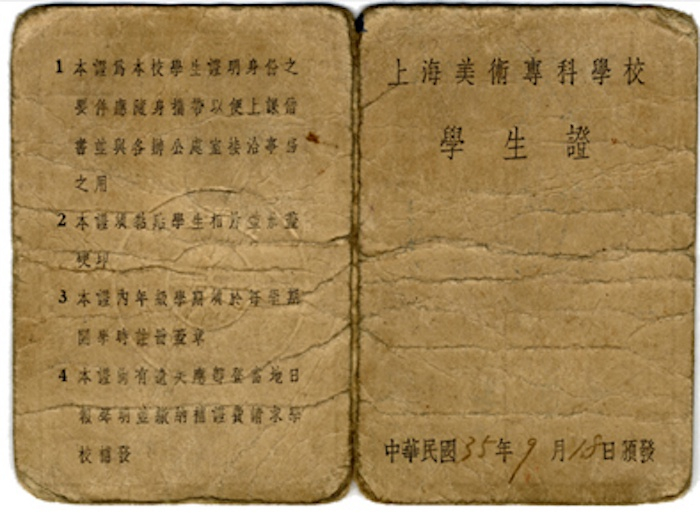 上海美術專科學校
學生證
中華民國35年9月18日頒發
1 本證為本校學生證明身份之
要件應隨身攜帶以便上課借
書並與各辦公處室接洽事務
之用
2 本證須黏貼學生相片並加蓋
硬印
3 本證內年級學期須於每學期
開學時註冊蓋章
4 本證如有遺失應即登當地日
報聲明並繳納補證費請求學
校補發